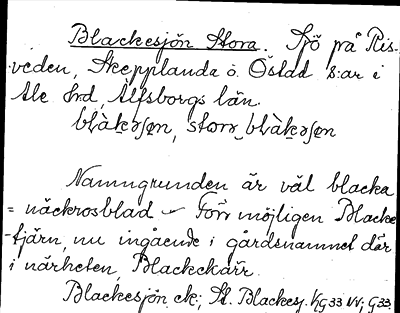 Blackesjön Stora. Sjö på Ris-
veden, Skepplanda o. Östad s:ar i
Ale hd, Älfsborgs län.
blàkəʃøn, storʌ blàkəʃøn
Namngrunden är väl blacka
= näckrosblad - Förr möjligen Blacke
-tjärn, nu ingående i gårdsnamnet där
i närheten, Blackekärr.
Blackesjön ek; St. Blackesj. KG33 NV; G33.